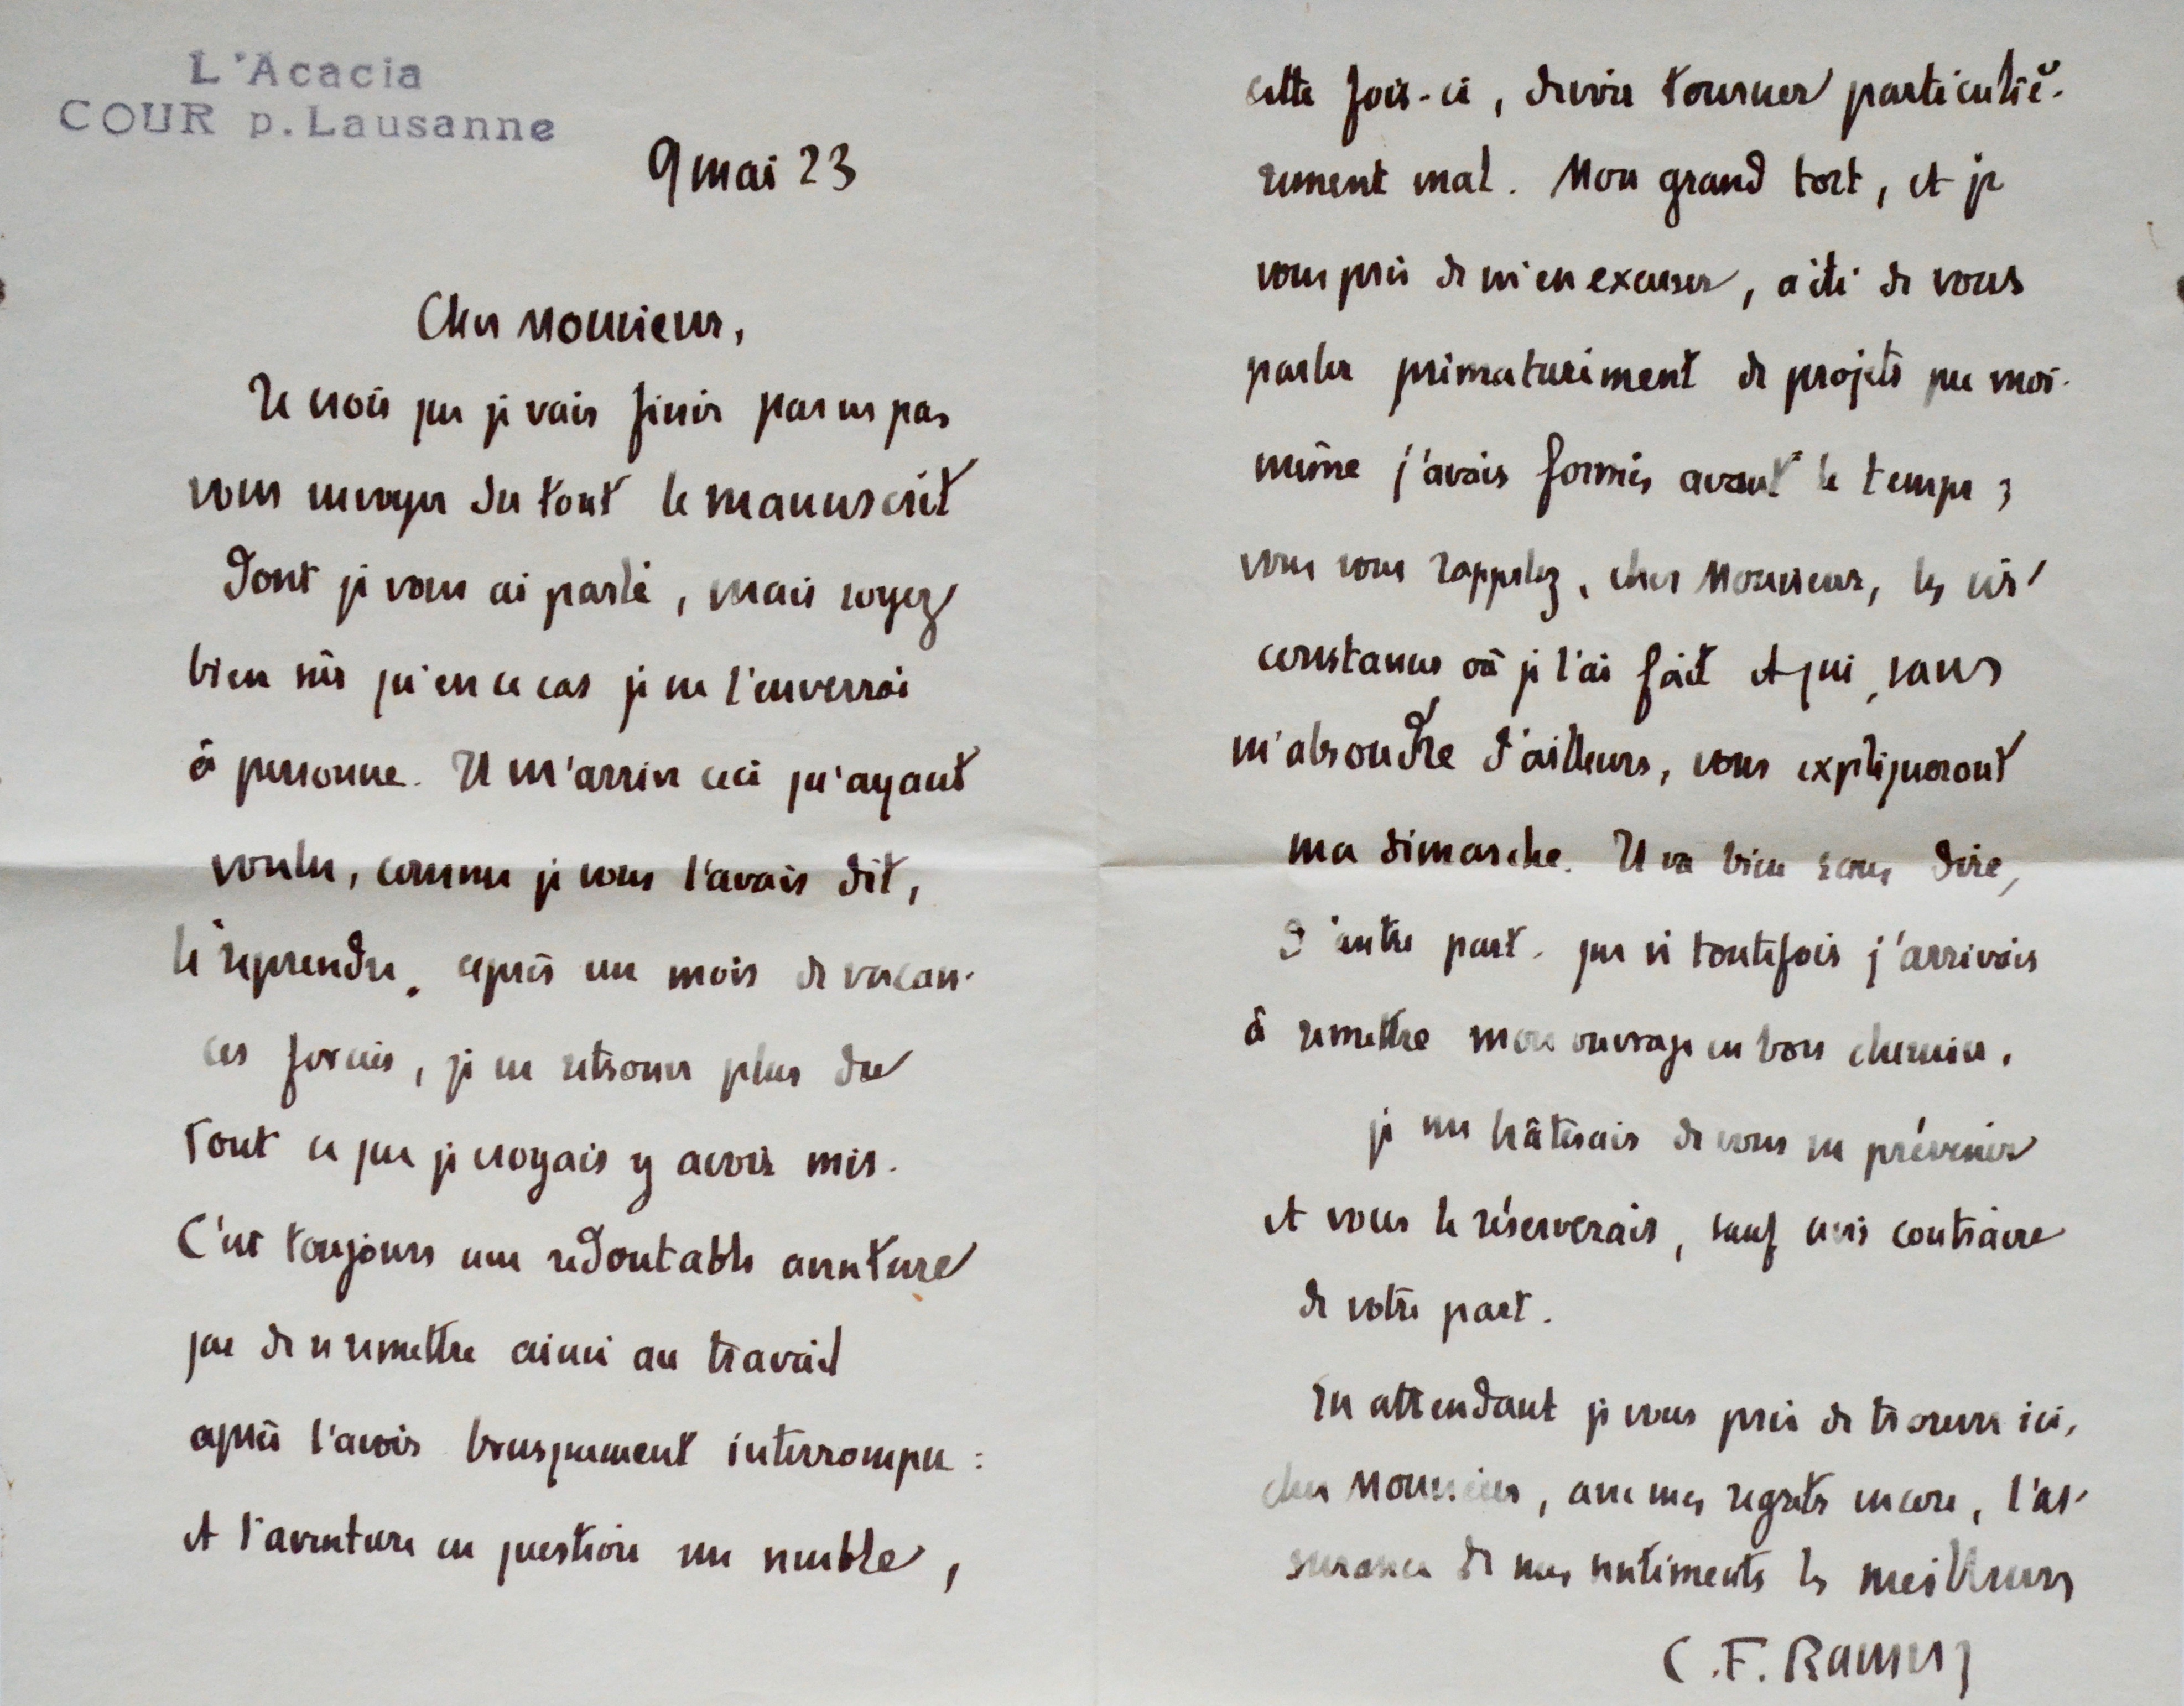 L'Acacia
COUR p. Lausanne
9 mai 23
Cher Monsieur,
Je crois que je vais finir par ne pas
vous envoyer du tout le manuscrit
dont je vous ai parlé, mais soyez
bien sûr qu'en ce cas je ne l'enverrai
à personne. Il m'arrive ceci qu'ayant
voulu, comme je vous l'avais dit,
le reprendre, après un mois de vacan-
ces forcées, je ne retrouve plus du
tout ce que je croyais y avoir mis.
C'est toujours une redoutable aventure
que de se remettre ainsi au travail
après l'avoir brusquement interrompu :
et l'aventure en question me semble,
cette fois-ci, devoir tourner particuliè-
rement mal. Mon grand tort, et je
vous prie de m'en excuser, a été de vous
parler prématurément de projets que moi-
même j'avais formés avant le temps ;
vous vous rappelez, cher Monsieur, les cir-
constances où je l'ai fait et qui, sans
m'absoudre d'ailleurs, vous expliqueront
ma démarche. Il va bien sans dire,
d'autre part, que si toutefois j'arrivais
à remettre mon ouvrage en bon chemin,
je me hâterais de vous en prévenir
et vous le réserverais, sauf avis contraire
de votre part.
En attendant je vous prie de trouver ici,
cher Monsieur, avec mes regrets encore, l'as-
surance de mes sentiments les meilleurs
C.F. Ramuz